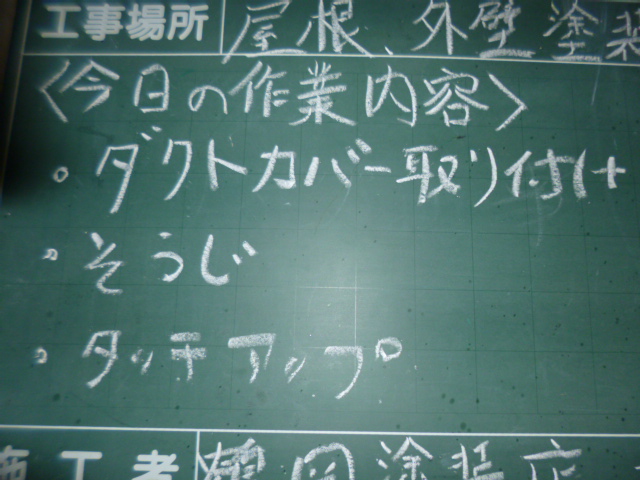 工事場所 屋根、外壁塗装
〈今日の作業内容〉
・ダクトカバー取り付け
・そうじ
・タッチアップ
施工者 岡塗装店